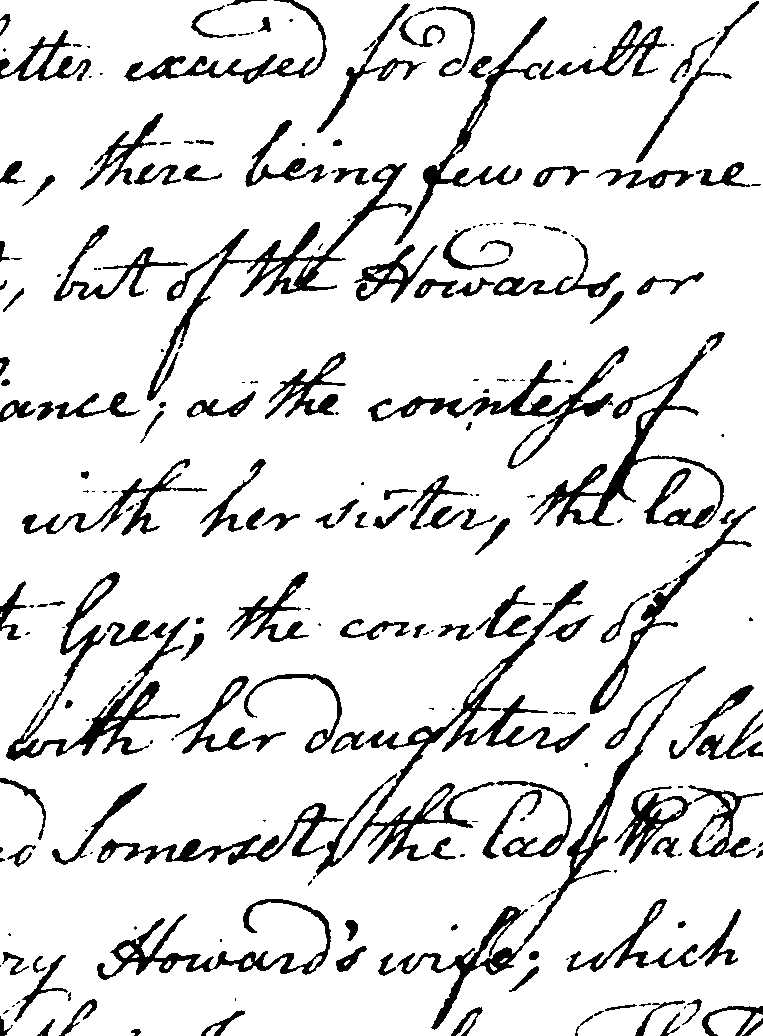 etter excused for default of
e, there being few or none
, but of the Howards, or
iance; as the countess of
with her sister, the lady
th Grey; the countess of
with her daughters of Sali
ed Somerset, the lady Walden
ry Howard's wife; which